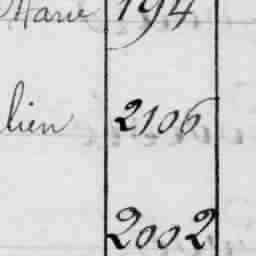 Marie 194
lien 2106
2002